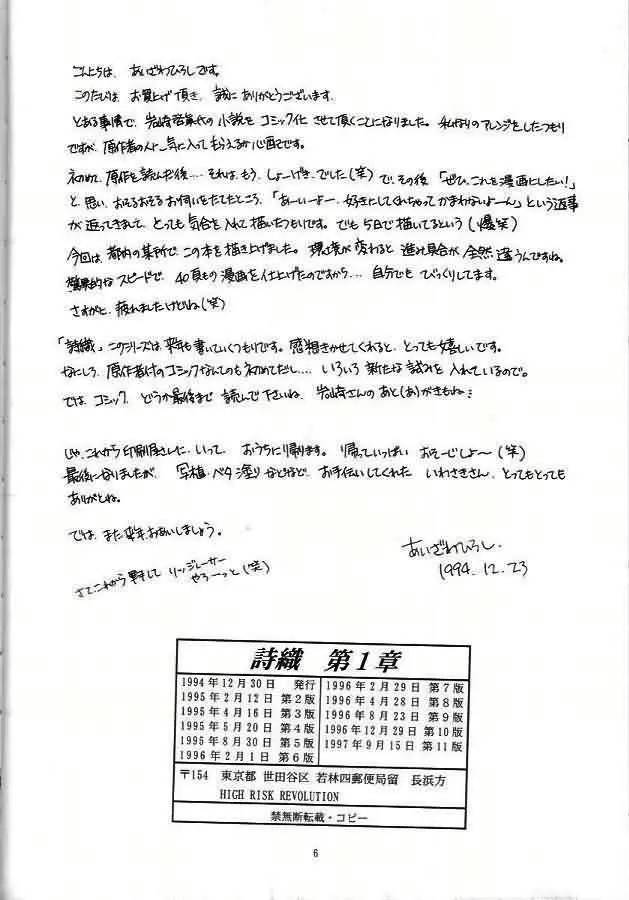 こんにちは、あいざわひろしです。
このたびは、お買上げ頂き、誠にありがとうございます。
とある事情で、岩崎啓眞代の小説をコミック化させて頂くことになりました。私なりのアレンジをしたつもり
ですが、原作者の人に気に入ってもらえるか心配です。
初めて、原作を読んだ後…それは、もう、しょーげき、でした(笑)で、その後「ぜひ、これを漫画にしたい!」
と、思い、おそるおそるお伺いをたてたところ、「あーいーよー、好きにしてくれちゃってかまわないよーん」という返事
が返ってきまして、とっても気合を入れて描いたつもりです。でも5日で描いてるという(爆笑)
今回は、都内の某所で、この本を描き上げました。環境が変わると進み具合が全然違うんですね。
驚異的なスピードで、40頁もの漫画を仕上げたのですから…自分でもびっくりしてます。
さすがに、疲れましたけどね(笑)
「詩織」このシリーズは、来年も書いていくつもりです。感想きかせてくれると、とっても嬉しいです。
なにしろ、原作者付のコミックなんてのも初めてだし…いろいろ新たな試みを入れているので。
では、コミック、どうか最後まで読んで下さいね、岩崎さんのあと(あ)がきもね…
じゃ、これから印刷屋さんに、いって、おうちに帰ります。帰っていっぱいおそーじしよ〜(笑)
最後になりましたが、写植・ベタ塗りなどなど、お手伝いしてくれた いわさきさん、とってもとっても
ありがとね。
では、また来年、おあいしましょう。
さて、これから 野手して リッジレーサー
やろーっと(笑)
あいざわひろし.
1994.12.23
詩織 第1章
1994年12月30日 発行
1995年2月12日 第2版
1995年4月16日 第3版
1995年5月20日 第4版
1995年8月30日 第5版
1996年2月1日 第6版
1996年2月29日 第7版
1996年4月28日 第8版
1996年8月23日 第9版
1996年12月29日 第10版
1997年9月15日 第11版
〒154 東京都 世田谷区 若林四郵便局留 長浜方
HIGH RISK REVOLUTION
禁無断転載・コピー
6